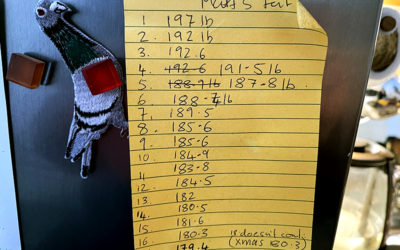 1. 197 lb
2. 192 lb
3. 192.6
4. 192-6 191-5 lb
5. 188-9 lb 187-8 lb.
6 188-7 lb
7. 189.5
8. 185-6
9. 185-6
10. 184-9
11 183-8
12. 184.5
13. 182
14. 180.5
15. 181.6
180.3 doesn't
16. 179.4 (xmas 180.3)